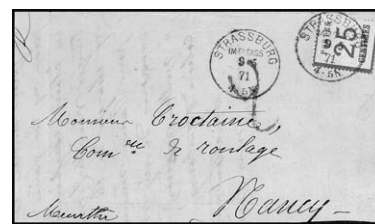 STRASSBURG
IM ELSASS
9 5
71
4-5N
STRASSBURG
9
71
4-5N
25
CENTIMES
Monsieur Croctaine,
Com re de roulage
Nancy
Meurthe